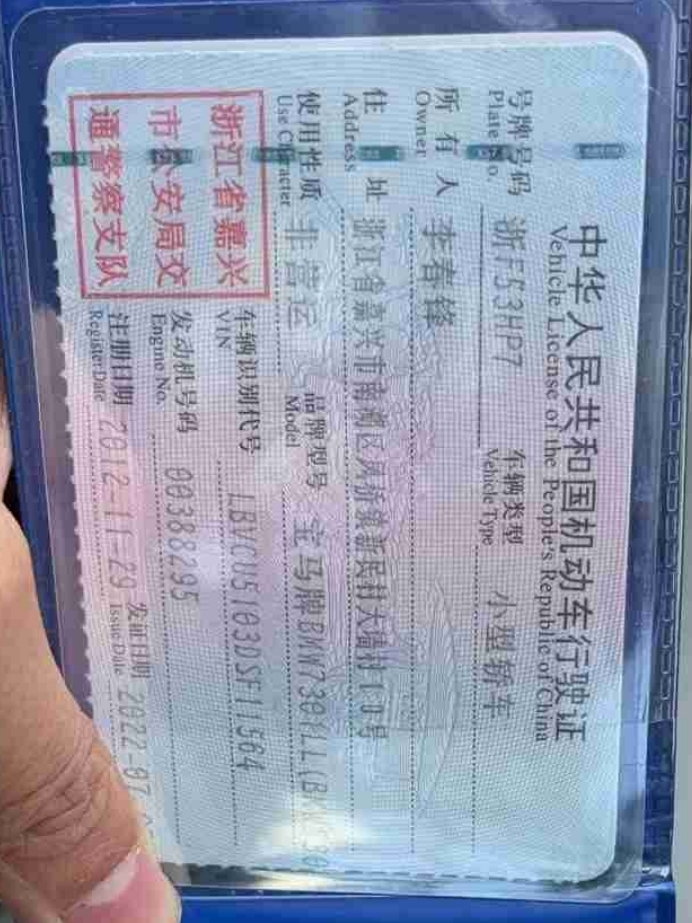 中华人民共和国机动车行驶证
Vehicle License of the People's Republic of China
号牌号码 浙F53HP7 车辆类型 小型轿车
Plate No. Vehicle Type
所有人 李春锋
Owner
住址 浙江省嘉兴市南湖区凤桥镇新民村大墙村10号
Address
使用性质 非营运 品牌型号 宝马牌BMW7301LL(BMW730
Use Character Model
浙江省嘉兴
市公安局交
通警察支队
车辆识别代号 LBVCU5103DSF11564
VIN
发动机号码 00388295
Engine No.
注册日期 2012-11-29 发证日期 2022-07
Register Date Issue Date